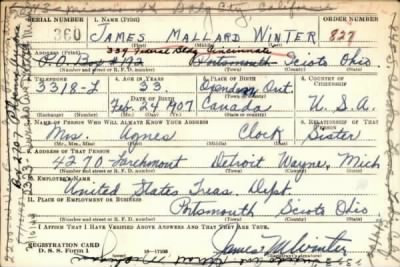 Daly City, California
SERIAL NUMBER 1. NAME (Print) ORDER NUMBER
360 JAMES MALLARD WINTER 827
(First) (Middle) (Last)
339 Federal Bldg. Cincinnati
2. ADDRESS (Print)
P.O. Box Portsmouth Scioto Ohio
(Number and street or R. F. D. number) (Town) (County) (State)
3. TELEPHONE 4. AGE IN YEARS 5. PLACE OF BIRTH 6. COUNTRY OF CITIZENSHIP
3318-L 33 Ont.
DATE OF BIRTH (Town or county)
Feb. 24 1907 Canada U.S.A.
(Mo.) (Day) (Yr.) (State or country)
7. NAME OF PERSON WHO WILL ALWAYS KNOW YOUR ADDRESS 8. RELATIONSHIP OF THAT PERSON
Mrs. Agnes Clock Sister
(Mr., Mrs., Miss) (First) (Middle) (Last)
9. ADDRESS OF THAT PERSON
4270 Larchmont Detroit Wayne, Mich
(Number and street or R. F. D. number) (Town) (County) (State)
10. EMPLOYER'S NAME
United States Treas. Dept.
11. PLACE OF EMPLOYMENT OR BUSINESS
Portsmouth Scioto Ohio
(Number and street or R. F. D. number) (Town) (County) (State)
I AFFIRM THAT I HAVE VERIFIED ABOVE ANSWERS AND THAT THEY ARE TRUE.
REGISTRATION CARD
D. S. S. Form 1
James M Winter